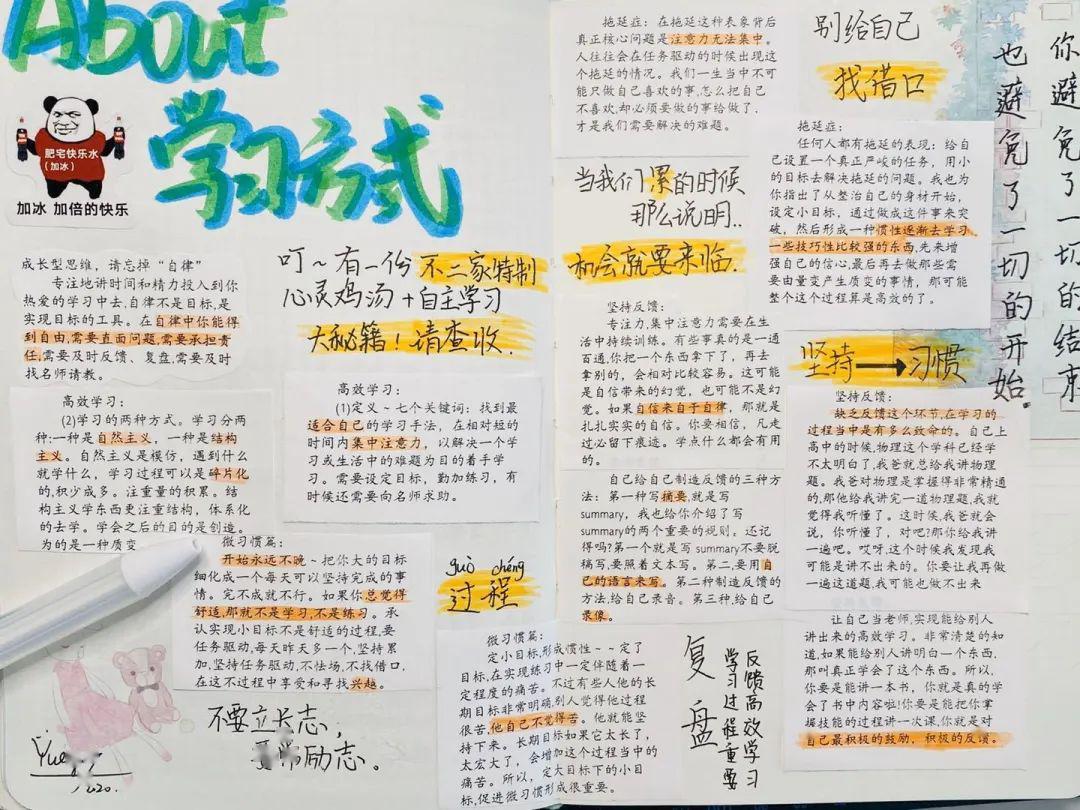 About
学习方式
肥宅快乐水
(加冰)
加冰 加倍的快乐
成长型思维，请忘掉“自律”
专注地讲时间和精力投入到你
热爱的学习中去,自律不是目标,是
实现目标的工具。在自律中你能得
到自由,需要直面问题,需要承担责
任,需要及时反馈、复盘,需要及时
找名师请教。
叮~有一份不二家特制
心灵鸡汤+自主学习
大秘籍！请查收.
高效学习：
(2)学习的两种方式。学习分两
种:一种是自然主义，一种是结构
主义。自然主义是模仿，遇到什么
就学什么，学习过程可以是碎片化
的,积少成多。注重量的积累。结
构主义学东西更注重结构，体系化
的去学。学会之后的目的是创造。
为的是一种质变
高效学习：
(1)定义~七个关键词：找到最
适合自己的学习手法，在相对短的
时间内集中注意力，以解决一个学
习或生活中的难题为目的着手学
习。需要设定目标，勤加练习，有
时候还需要向名师求助。
微习惯篇：
开始永远不晚~把你大的目标
细化成一个每天可以坚持完成的事
情。完不成就不行。如果你总觉得
舒适,那就不是学习,不是练习。承
认实现小目标不是舒适的过程,要
任务驱动,每天昨天多一个,坚持累
加,坚持任务驱动,不怯场,不找借口,
在这不过程中享受和寻找兴趣。
guò chéng
过程
不要立长志，
要常励志。
2020.
微习惯篇：
定小目标,形成惯性~~定了
目标,在实现练习中一定伴随着一
定程度的痛苦。不过有些人他的长
期目标非常明确,别人觉得他过程
很苦,他自己不觉得苦。他就能坚
持下来。长期目标如果它太长了，
太宏大了，会增加这个过程当中的
痛苦。所以，定大目标下的小目
标,促进微习惯形成很重要。
拖延症：在拖延这种表象背后
真正核心问题是注意力无法集中。
人往往会在任务驱动的时候出现这
个拖延的情况。我们一生当中不可
能只做自己喜欢的事,怎么把自己
不喜欢,却必须要做的事给做了，
才是我们需要解决的难题。
别给自己
找借口
你避免了一切的结束
也避免了一切的开始.
当我们累的时候
那么说明..
机会就要来临.
拖延症：
任何人都有拖延的表现：给自
己设置一个真正严峻的任务，用小
的目标去解决拖延的问题。我也为
你指出了从整治自己的身材开始，
设定小目标，通过做成这件事来突
破，然后形成一种惯性逐渐去学习
一些技巧性比较强的东西,先来增
强自己的信心,最后再去做那些需
要由量变产生质变的事情，那可能
整个这个过程算是高效的了。
坚持反馈：
专注力,集中注意力需要在生
活中持续训练。有些事真的是一通
百通,你把一个东西拿下了，再去
拿别的，会相对比较容易。这可能
是自信带来的幻觉，也可能不是幻
觉。如果自信来自于自律，那就是
扎扎实实的自信。你要相信，凡走
过必留下痕迹。学点什么都会有用
的。
坚持→习惯
坚持反馈：
缺乏反馈这个环节,在学习的
过程当中是有多么致命的。自己上
高中的时候,物理这个学科已经学
不太明白了,我爸就总给我讲物理
题。我爸对物理是掌握得非常精通
的,那他给我讲完一道物理题,我就
觉得我听懂了。这时候,我爸就会
说，你听懂了，对吧?那你给我讲
一遍吧。哎呀,这个时候我发现我
可能是讲不出来的。你要让我再做
一遍这道题,我可能也做不出来
自己给自己制造反馈的三种方
法：第一种写摘要,就是写
summary，我也给你介绍了写
summary的两个重要的规则。还记
得吗?第一个就是写 summary不要脱
稿写,要照着文本写。第二,要用自
己的语言来写。第二种制造反馈的
方法,给自己录音。第三种,给自己
录像。
复盘
反馈高效学习
学习过程重要
让自己当老师,实现能给别人
讲出来的高效学习。非常清楚的知
道,如果能给别人讲明白一个东西，
那叫真正学会了这个东西。所以，
你要是能讲一本书，你就是真的学
会了书中内容啦!你要是能把你掌
握技能的过程讲一次课,你就是对
自己最积极的鼓励，积极的反馈。